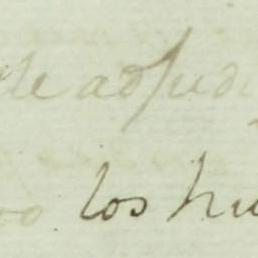 le adjudi
los hu